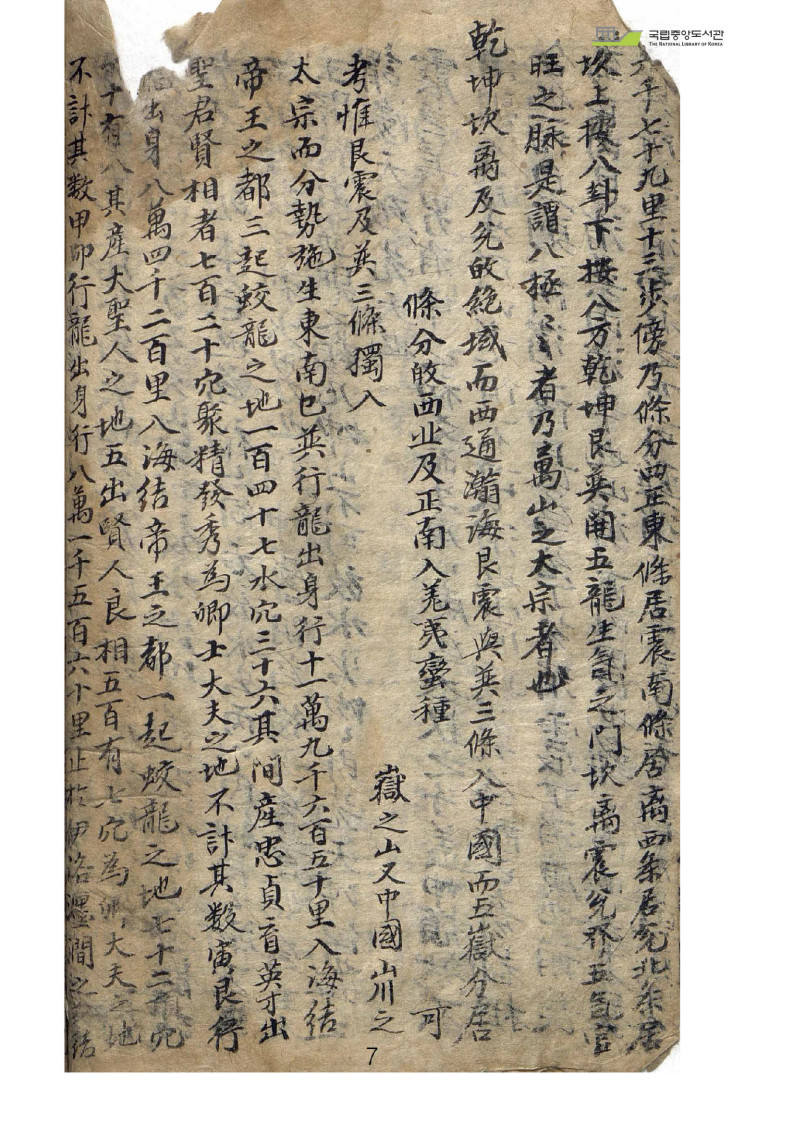 국립중앙도서관
THE NATIONAL LIBRARY OF KOREA
六千七十九里十三步傍乃條分四正東條居震南條居离西条居兊北条居
坎上按八卦下按八方乾坤艮巽開五龍生氣之門坎离震兊 五氣官
旺之脉是謂八極〻者乃萬山之大宗者也
乾坤坎离及兊的絶域而西通瀚海艮震與巽三條入中國而五嶽分居
條分的西北及正南入羌夷蠻種 可
嶽之山又中國山川之
考惟艮震及巽三條獨入
太宗而分勢施生東南巳巽行龍出身行十一萬九千六百五十里入海結
帝王之都三起蛟龍之地一百四十七水穴三十六其间産忠貞育英才出
聖君賢相者七百二十穴聚精發秀為卿士大夫之地不計其数寅艮行
出身八萬四千二百里入海結帝王之都一起蛟龍之地七十二 穴
十有八其産大聖人之地五出賢人良相五百有七穴為卿大夫之地
不計其数甲卯行龍出身行八萬一千五百六十里止於伊洛瀍澗之 結
7